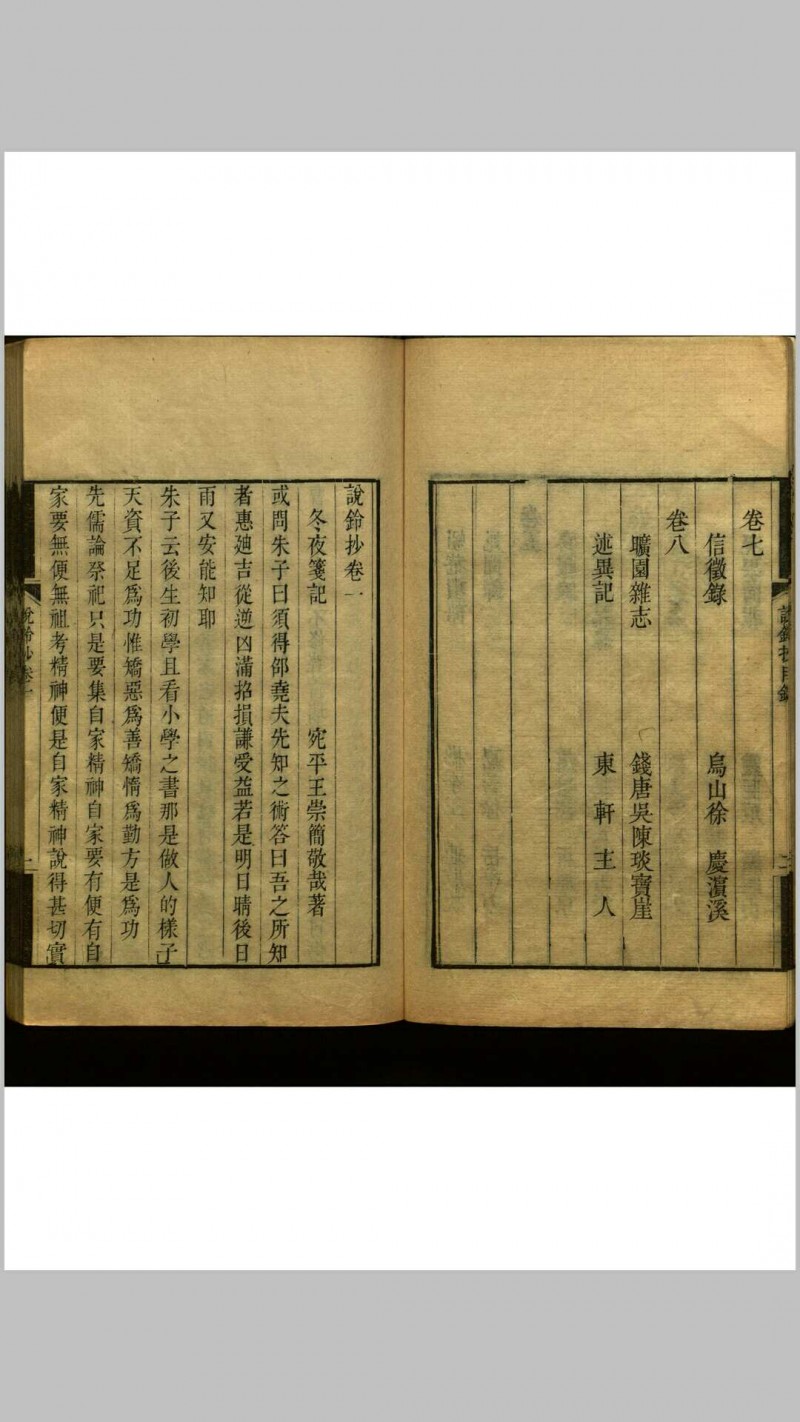 卷七
信徵錄 烏山徐 慶濵溪
卷八
曠園雜志 錢唐吳陳琰寶崖
述異記 東軒主人
說鈴抄目錄
二
說鈴抄卷一
冬夜箋記 宛平王崇簡敬哉著
或問朱子曰須得邵堯夫先知之術答曰吾之所知
者惠廸吉從逆凶滿招損謙受益若是明日晴後日
雨又安能知耶
朱子云後生初學且看小學之書那是做人的樣子
天資不足爲功惟矯惡爲善矯惰爲勤方是爲功
先儒論祭祀只是要集自家精神自家要有便有自
家要無便無祖考精神便是自家精神說得甚切實
說鈴抄卷一
一